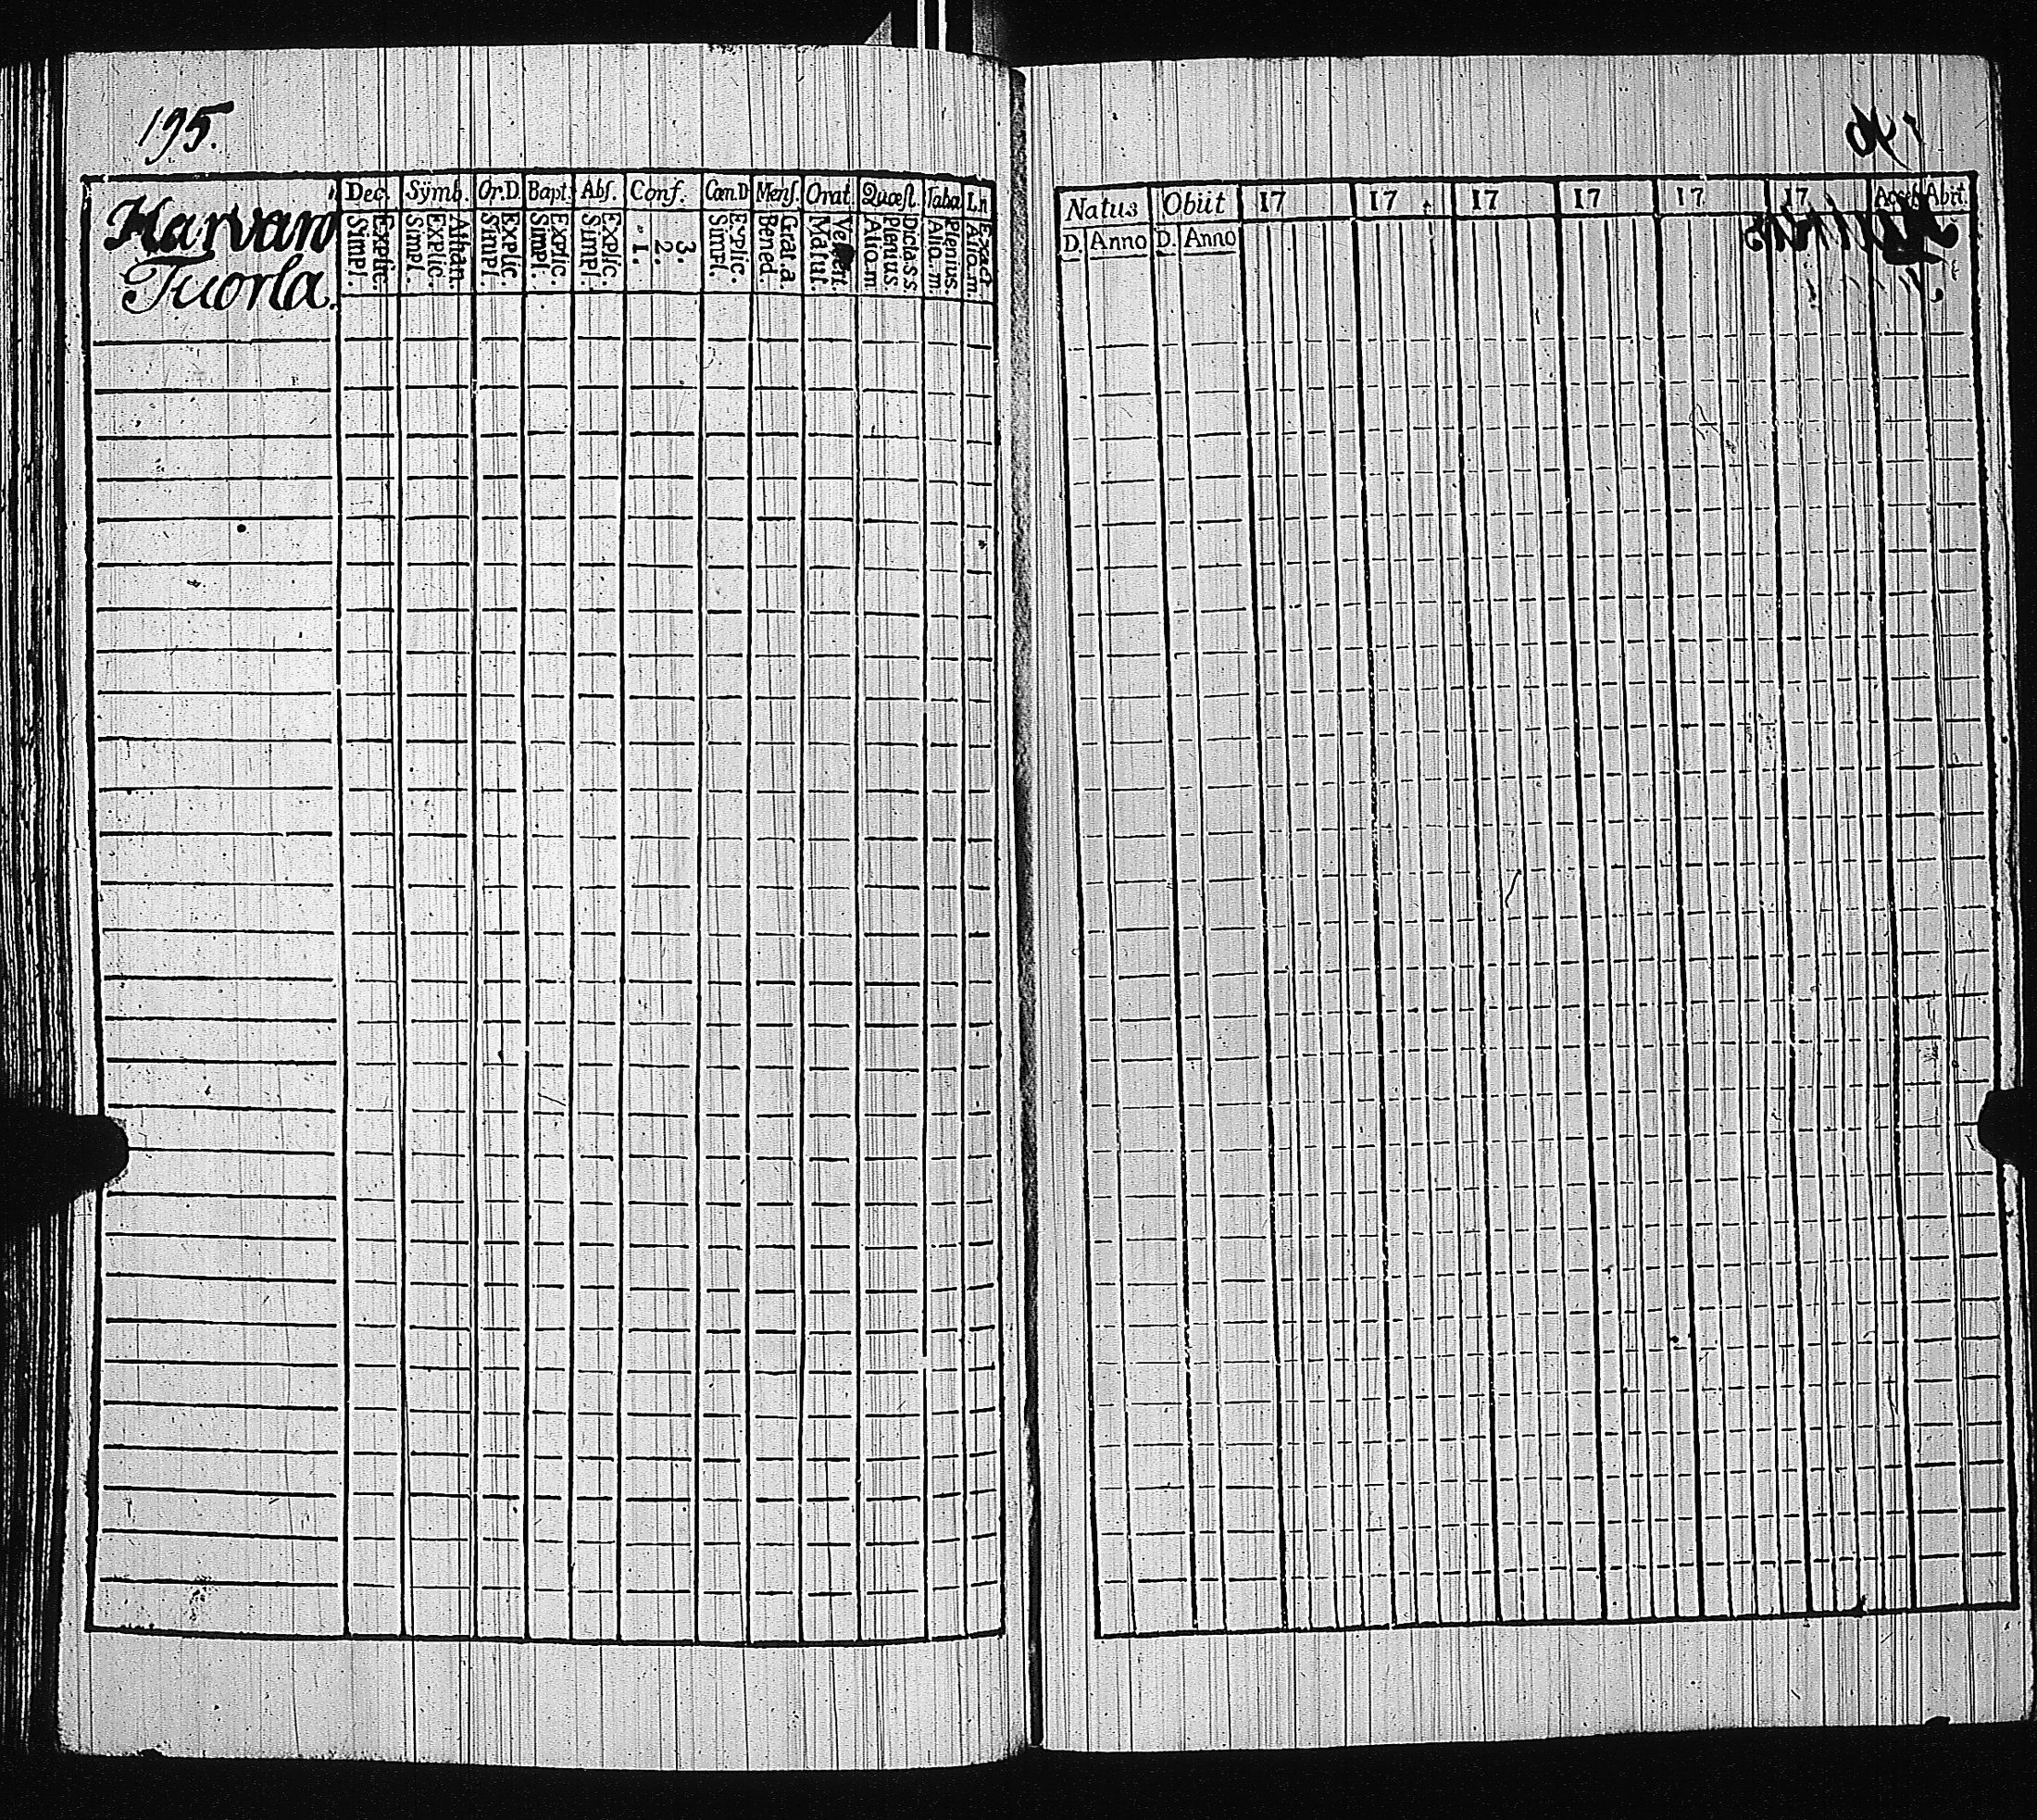 195.
Harvan
Tuorla.
Dec. Symb. Or.D. Bapt. Abſ. Conf. Cœn.D Menſ. Orat. Quæſt. Taba L.n
Simpl. Explic. Simpl. Explic. Athan. Simpl. Explic. Simpl. Explic. Simpl. Explic. 1. 2. 3. Simpl. Explic. Bened. Grat.a. Matut. Alio.m Plenius Dicta.s.s. Alio.m. Plenius. A lio.m. Exact
Natus Obiit 17 17 17 17 17 17 Acceſſ Abiit
D. Anno D. Anno